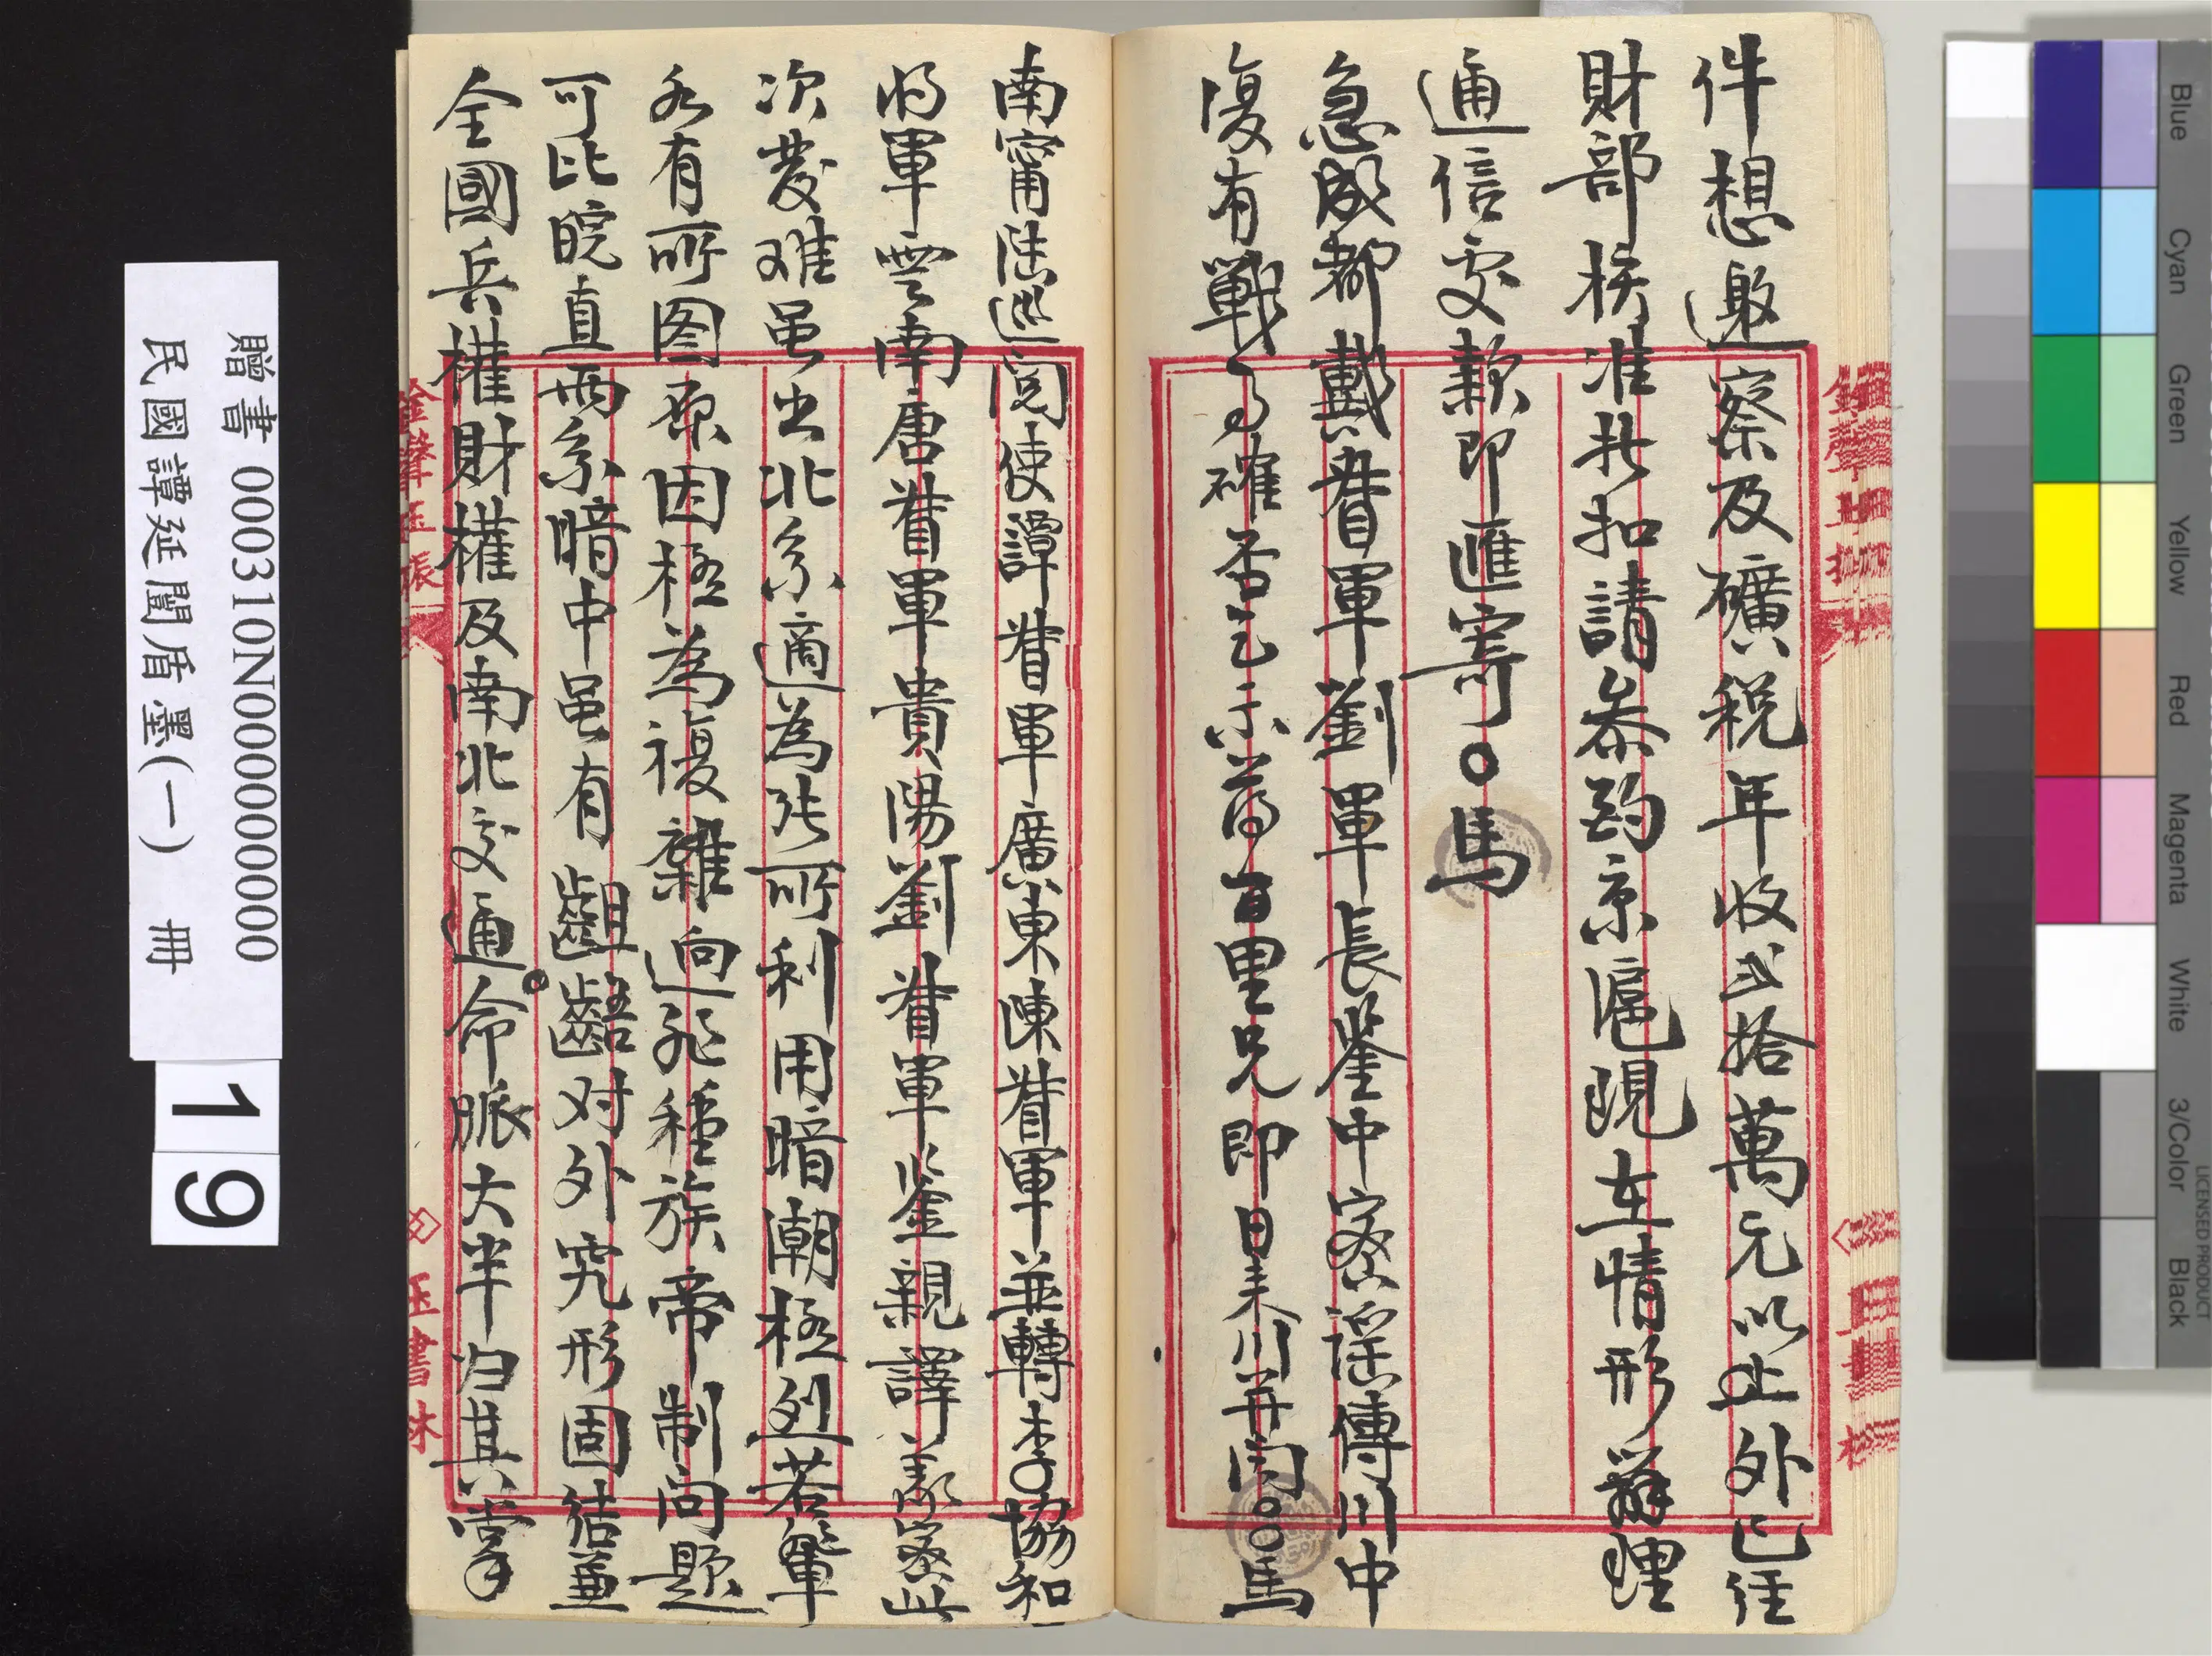 件想邀察及礦稅年收弍拾萬元以上外已往
財部核准扣請泰鈞京滬現在情形辦理
通信處款即匯寄〇馬
急成都戴督軍劉軍長鑒中密謠傳川中
復有戰事確否乞示蔣百里兄即日來川并聞〇〇馬
南甯陸巡閱使譚督軍廣東陳督軍並轉李協和
將軍雲南唐督軍貴陽劉督軍鑒親譯義密此
次發难虽出北系適為張所利用暗潮極烈若輩
各有所图原因極為複雜迥非種族帝制问題
可比皖直兩系暗中虽有齟齬对外究形固結兼
全國兵權財權及南北交通命脈大半归其掌
贈書 000310N0000000000
民國譚延闓盾墨(一) 冊
19
金聲玉振
玉書林
Blue
Cyan
Green
Yellow
Red
Magenta
White
3/Color
Black
LICENSED PRODUCT